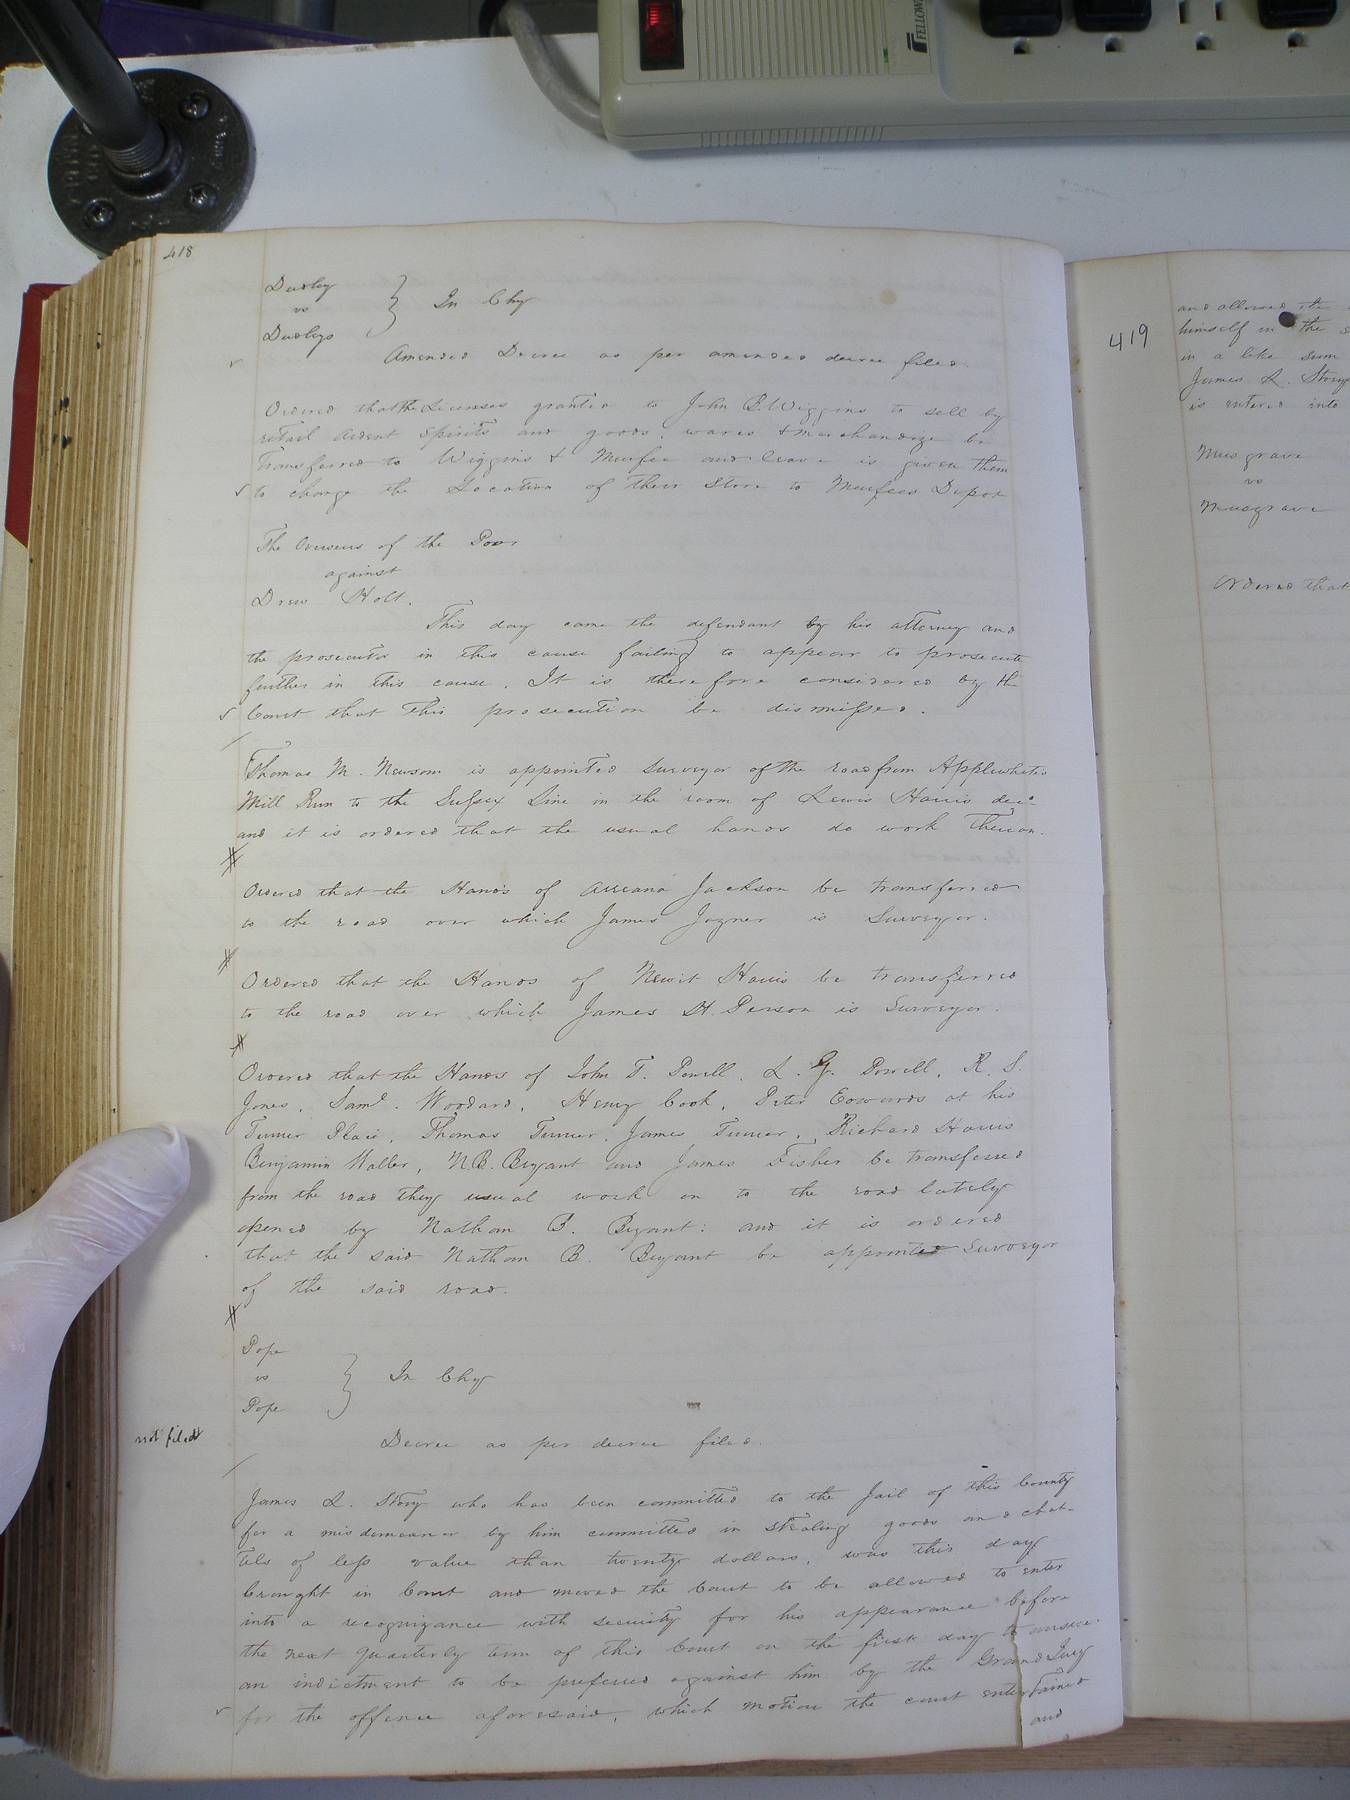 418
Dudley
vs
Dudleys
} In Chy
Amended Decree as per amended decree filed.
Ordered that the Licenses granted to John B. Wiggins to sell by
retail Ardent Spirits and goods, wares & merchandize be
Transferred to Wiggins & Murfee and leave is given them
to change the Location of their Store to Murfees Depot
The Overseers of the Poor
against
Drew Holt.
This day came the defendant by his attorney and
the prosecutor in this cause failing to appear to prosecute
further in this cause. It is therefore considered by the
Court that this prosecution be dismissed.
Thomas M. Newsom is appointed Surveyor of the road from Applewhites
Mill Run to the Sussex Line in the room of Lewis Harris decd
and it is ordered that the usual hands do work thereon.
Ordered that the Hands of Jackson be transferred
to the road over which James Joyner is Surveyor.
Ordered that the Hands of Newit Harris be transferred
to the road over which James H. Person is Surveyor.
Ordered that the Hands of John T. Powell, L. G. Powell, R. S.
Jones, Saml. Woodard, Henry Cook, Peter Edwards at his
Turner Place, Thomas Turner, James Turner, Richard Harris
Benjamin Waller, N.B. Bryant and James Fisher be transferred
from the road they usual work on to the road lately
opened by Nathan B. Bryant: and it is ordered
that the said Nathan B. Bryant be appointed Surveyor
of the said road.
Pope
vs
Pope
} In Chy
not filed
Decree as per decree filed.
James L. Story who has been committed to the Jail of this County
for a misdemeanor by him committed in Stealing goods and chat-
tels of less value than twenty dollars, was this day
brought in Court and moved the Court to be allowed to enter
into a recognizance with security for his appearance before
the next Quarterly term of this Court on the first day to answer
an indictment to be prefered against him by the Grand Jury
for the offence aforesaid, which motion the court entertained
and
419
and allowed the
himself in the s
in a like sum
James L. Story
is entered into
Musgrave
vs
Musgrave
Ordered that
FELLOW